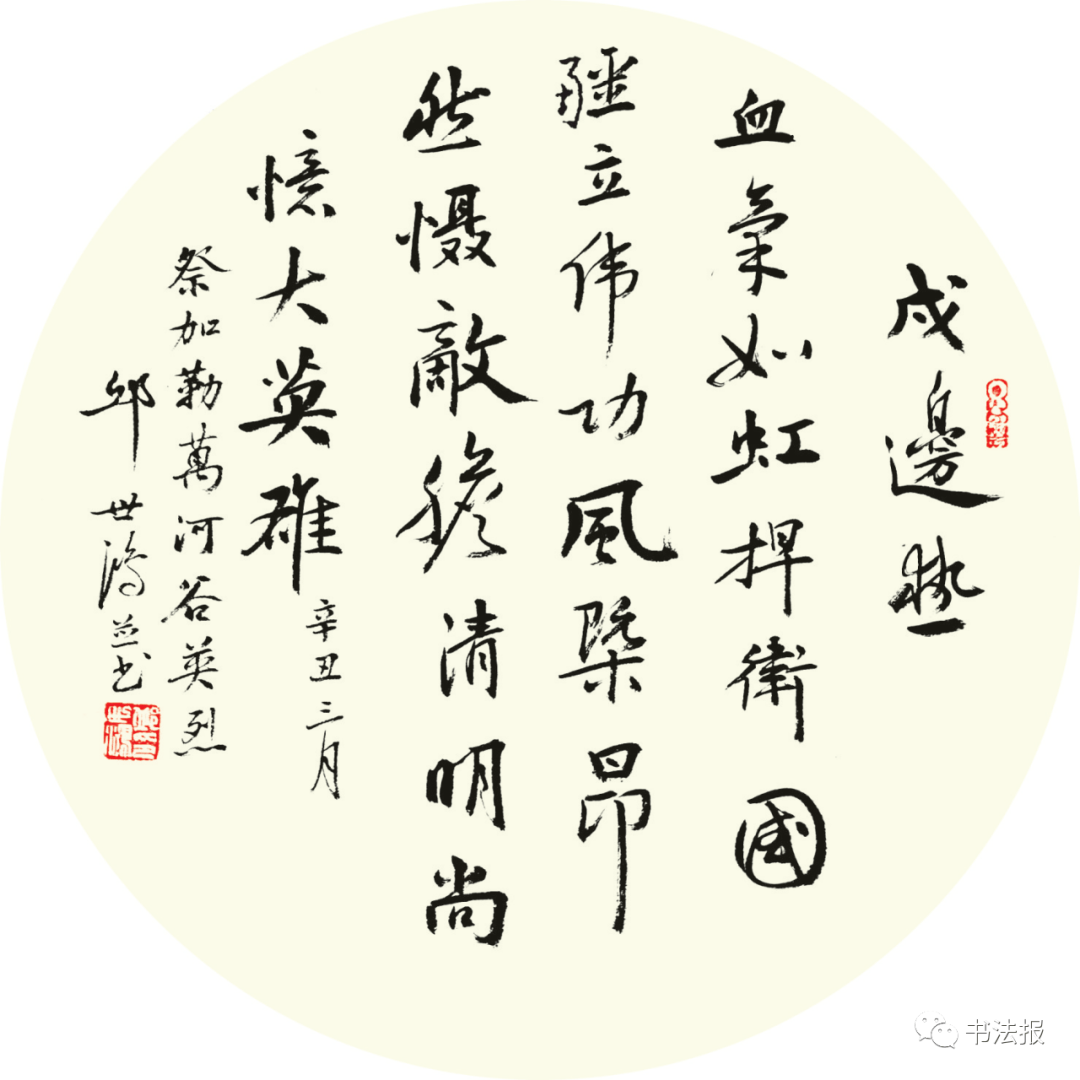 戍邊熱
血氣如虹捍衛國
疆立伟功風槩昂
然慑敵膽清明尚
憶大英雄辛丑三月
祭加勒萬河谷英烈
邱世鴻并书
书法报